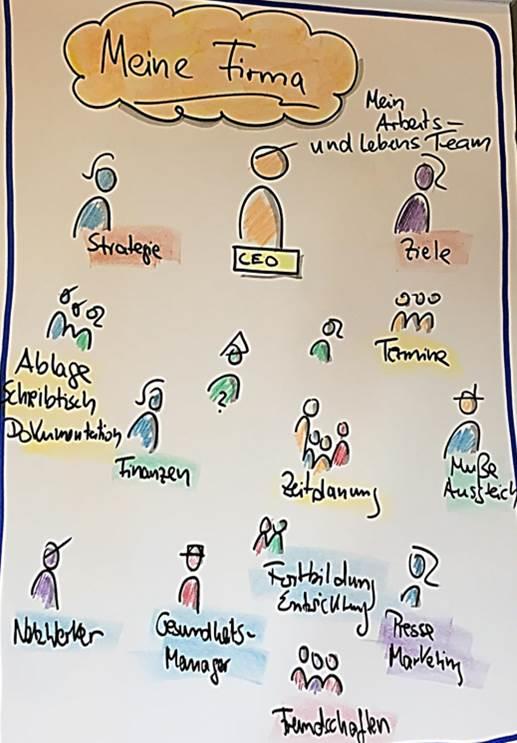 Meine Firma
Mein
Arbeits-
und Lebens Team
Strategie
CEO
Ziele
Termine
Ablage
Schreibtisch
Dokumentation
?
Finanzen
Zeitplanung
Muße
Ausgleich
Netzwerker
Gesundheits-
Manager
Fortbildung
Entwicklung
Presse
Marketing
Freundschaften